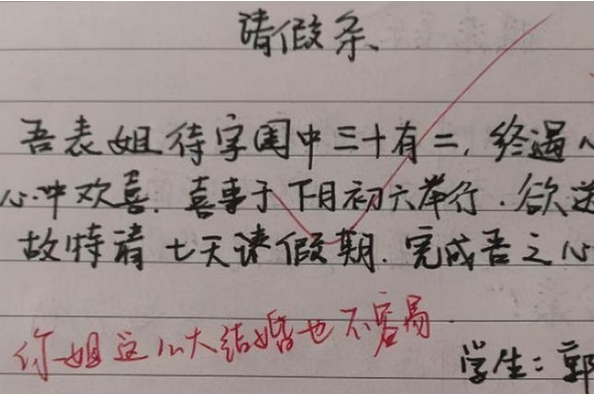 请假条
吾表姐待字闺中三十有二，终遇
心中欢喜．喜事于下月初六举行．欲送
故特请七天请假期．完成吾之心
你姐这么大结婚也不容易
学生：郭